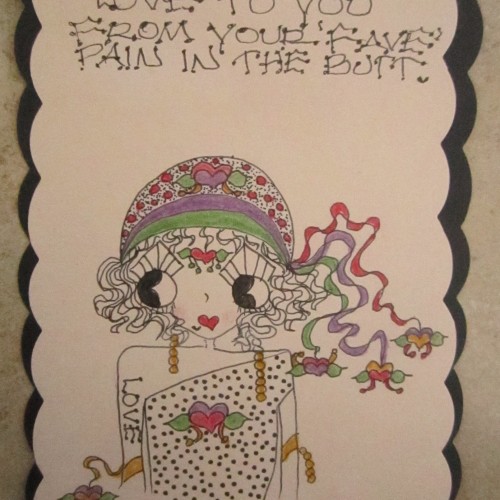 LOVE TO YOU
FROM YOUR 'FAVE'
PAIN IN THE BUTT.
LOVE